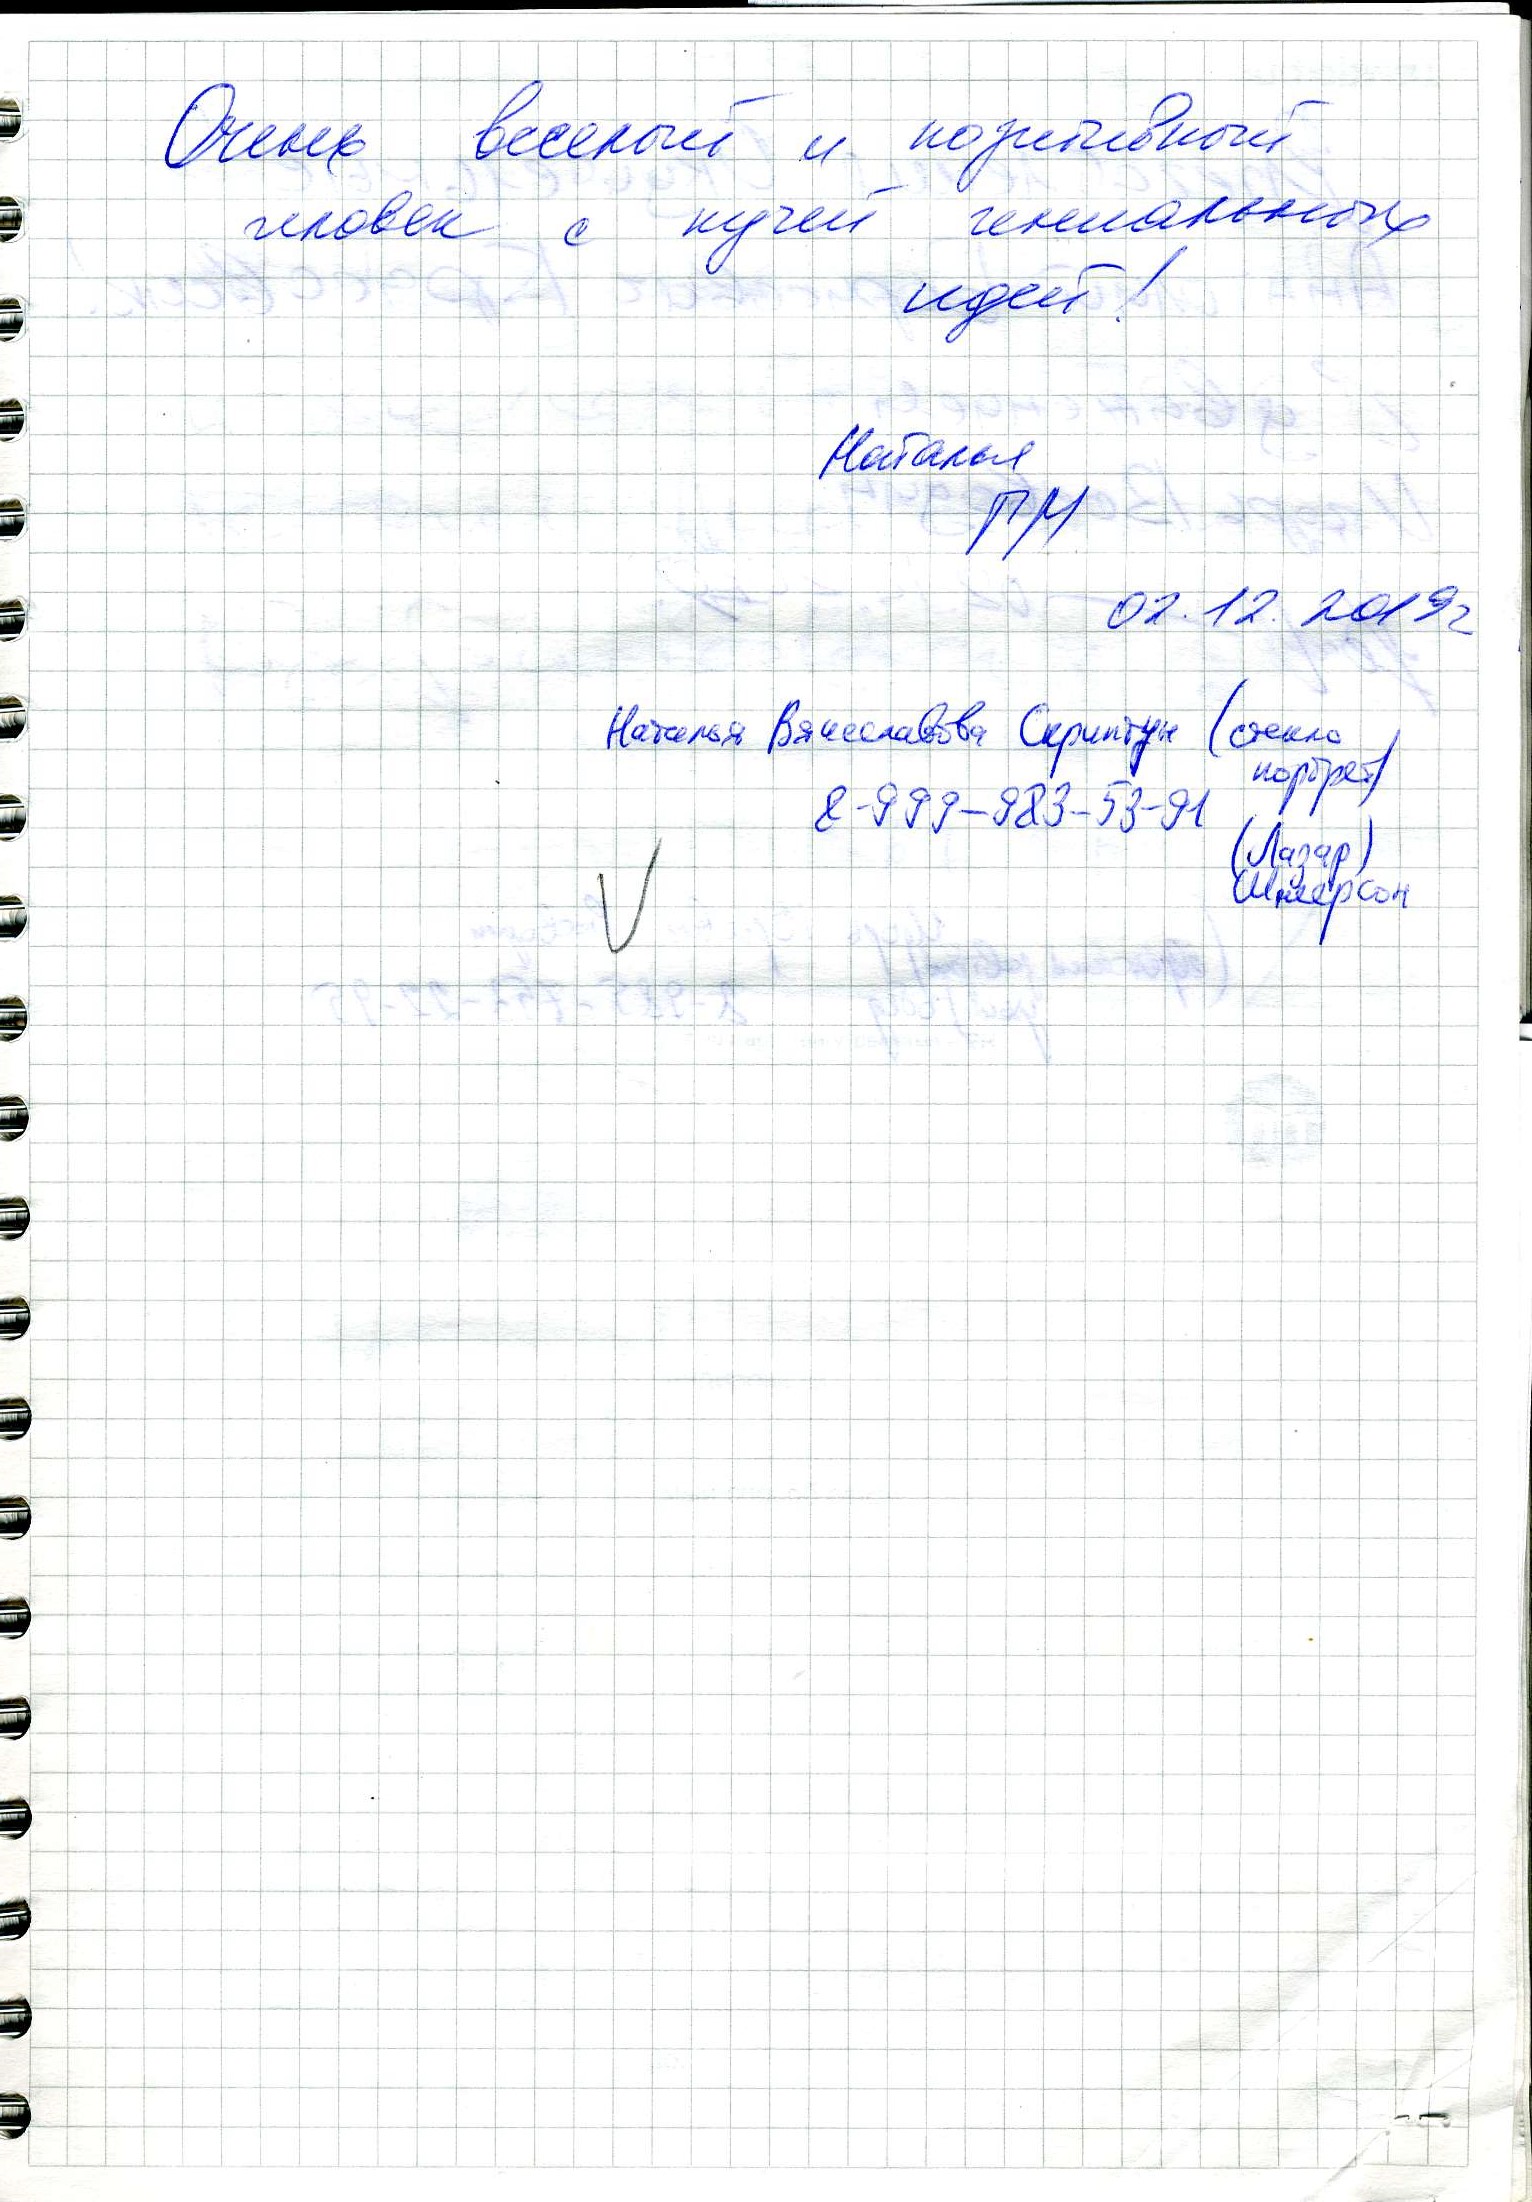 Очень веселый и позитивный
человек с кучей гениальных
идей!
Наталья
ПМ
02.12.2019г
Наталья Вячеславовова Скриптун (стекло
портрет)
8-999-983-53-91
(Лазар)
Шнеерсон